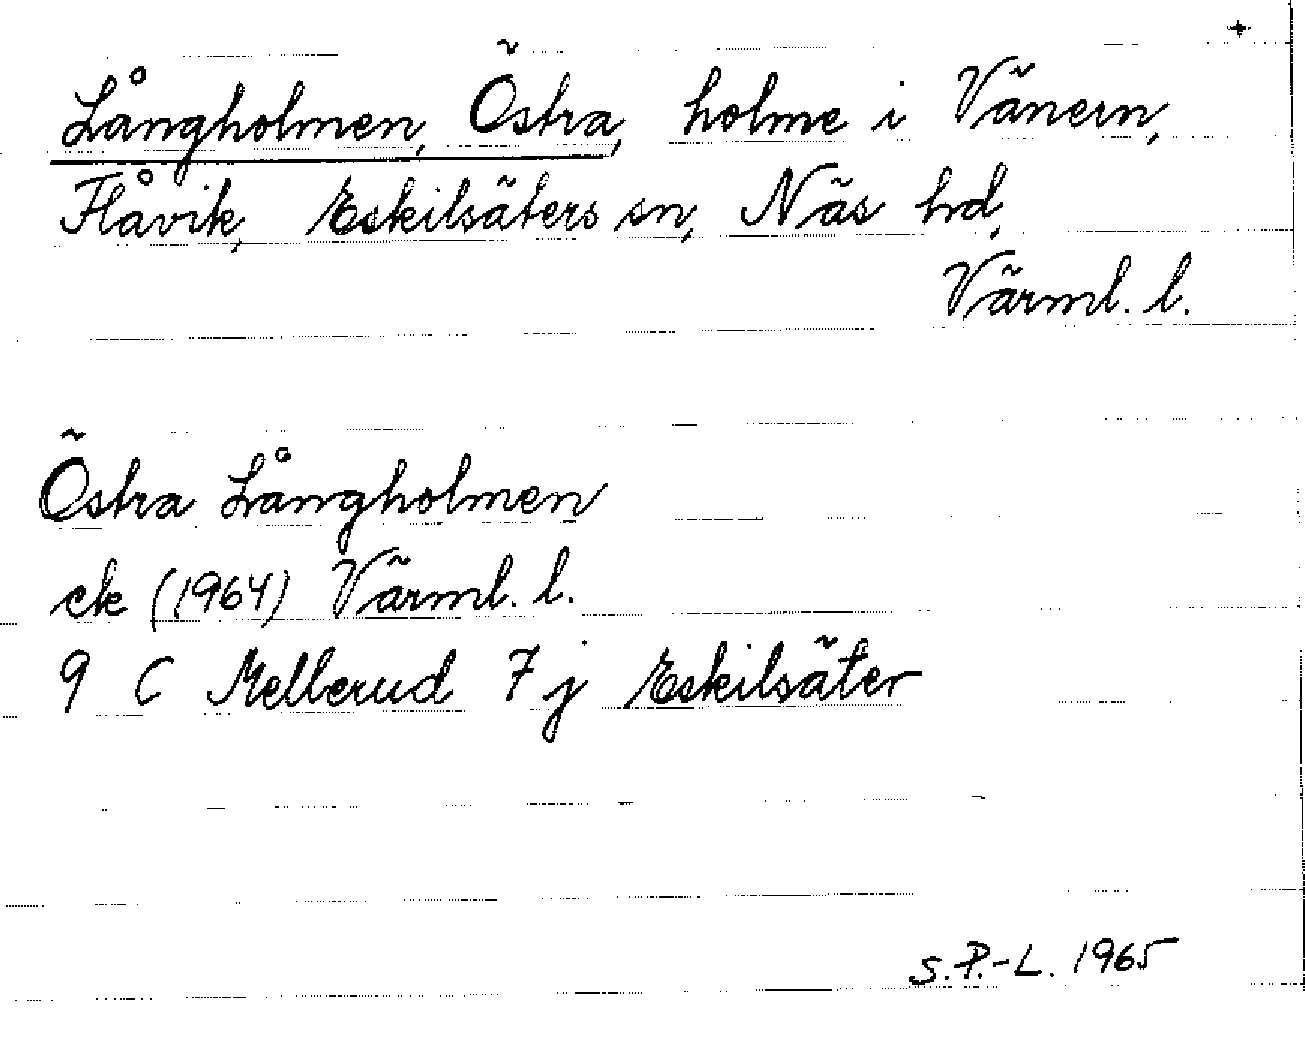 +
Långholmen, Östra, holme i Vänern,
Flåvik, Eskilsäters sn, Näs hd,
Värml. l.
Östra Långholmen
ek (1964) Värml. l.
9 C Mellerud 7 j Eskilsäter
S.P.-L. 1965